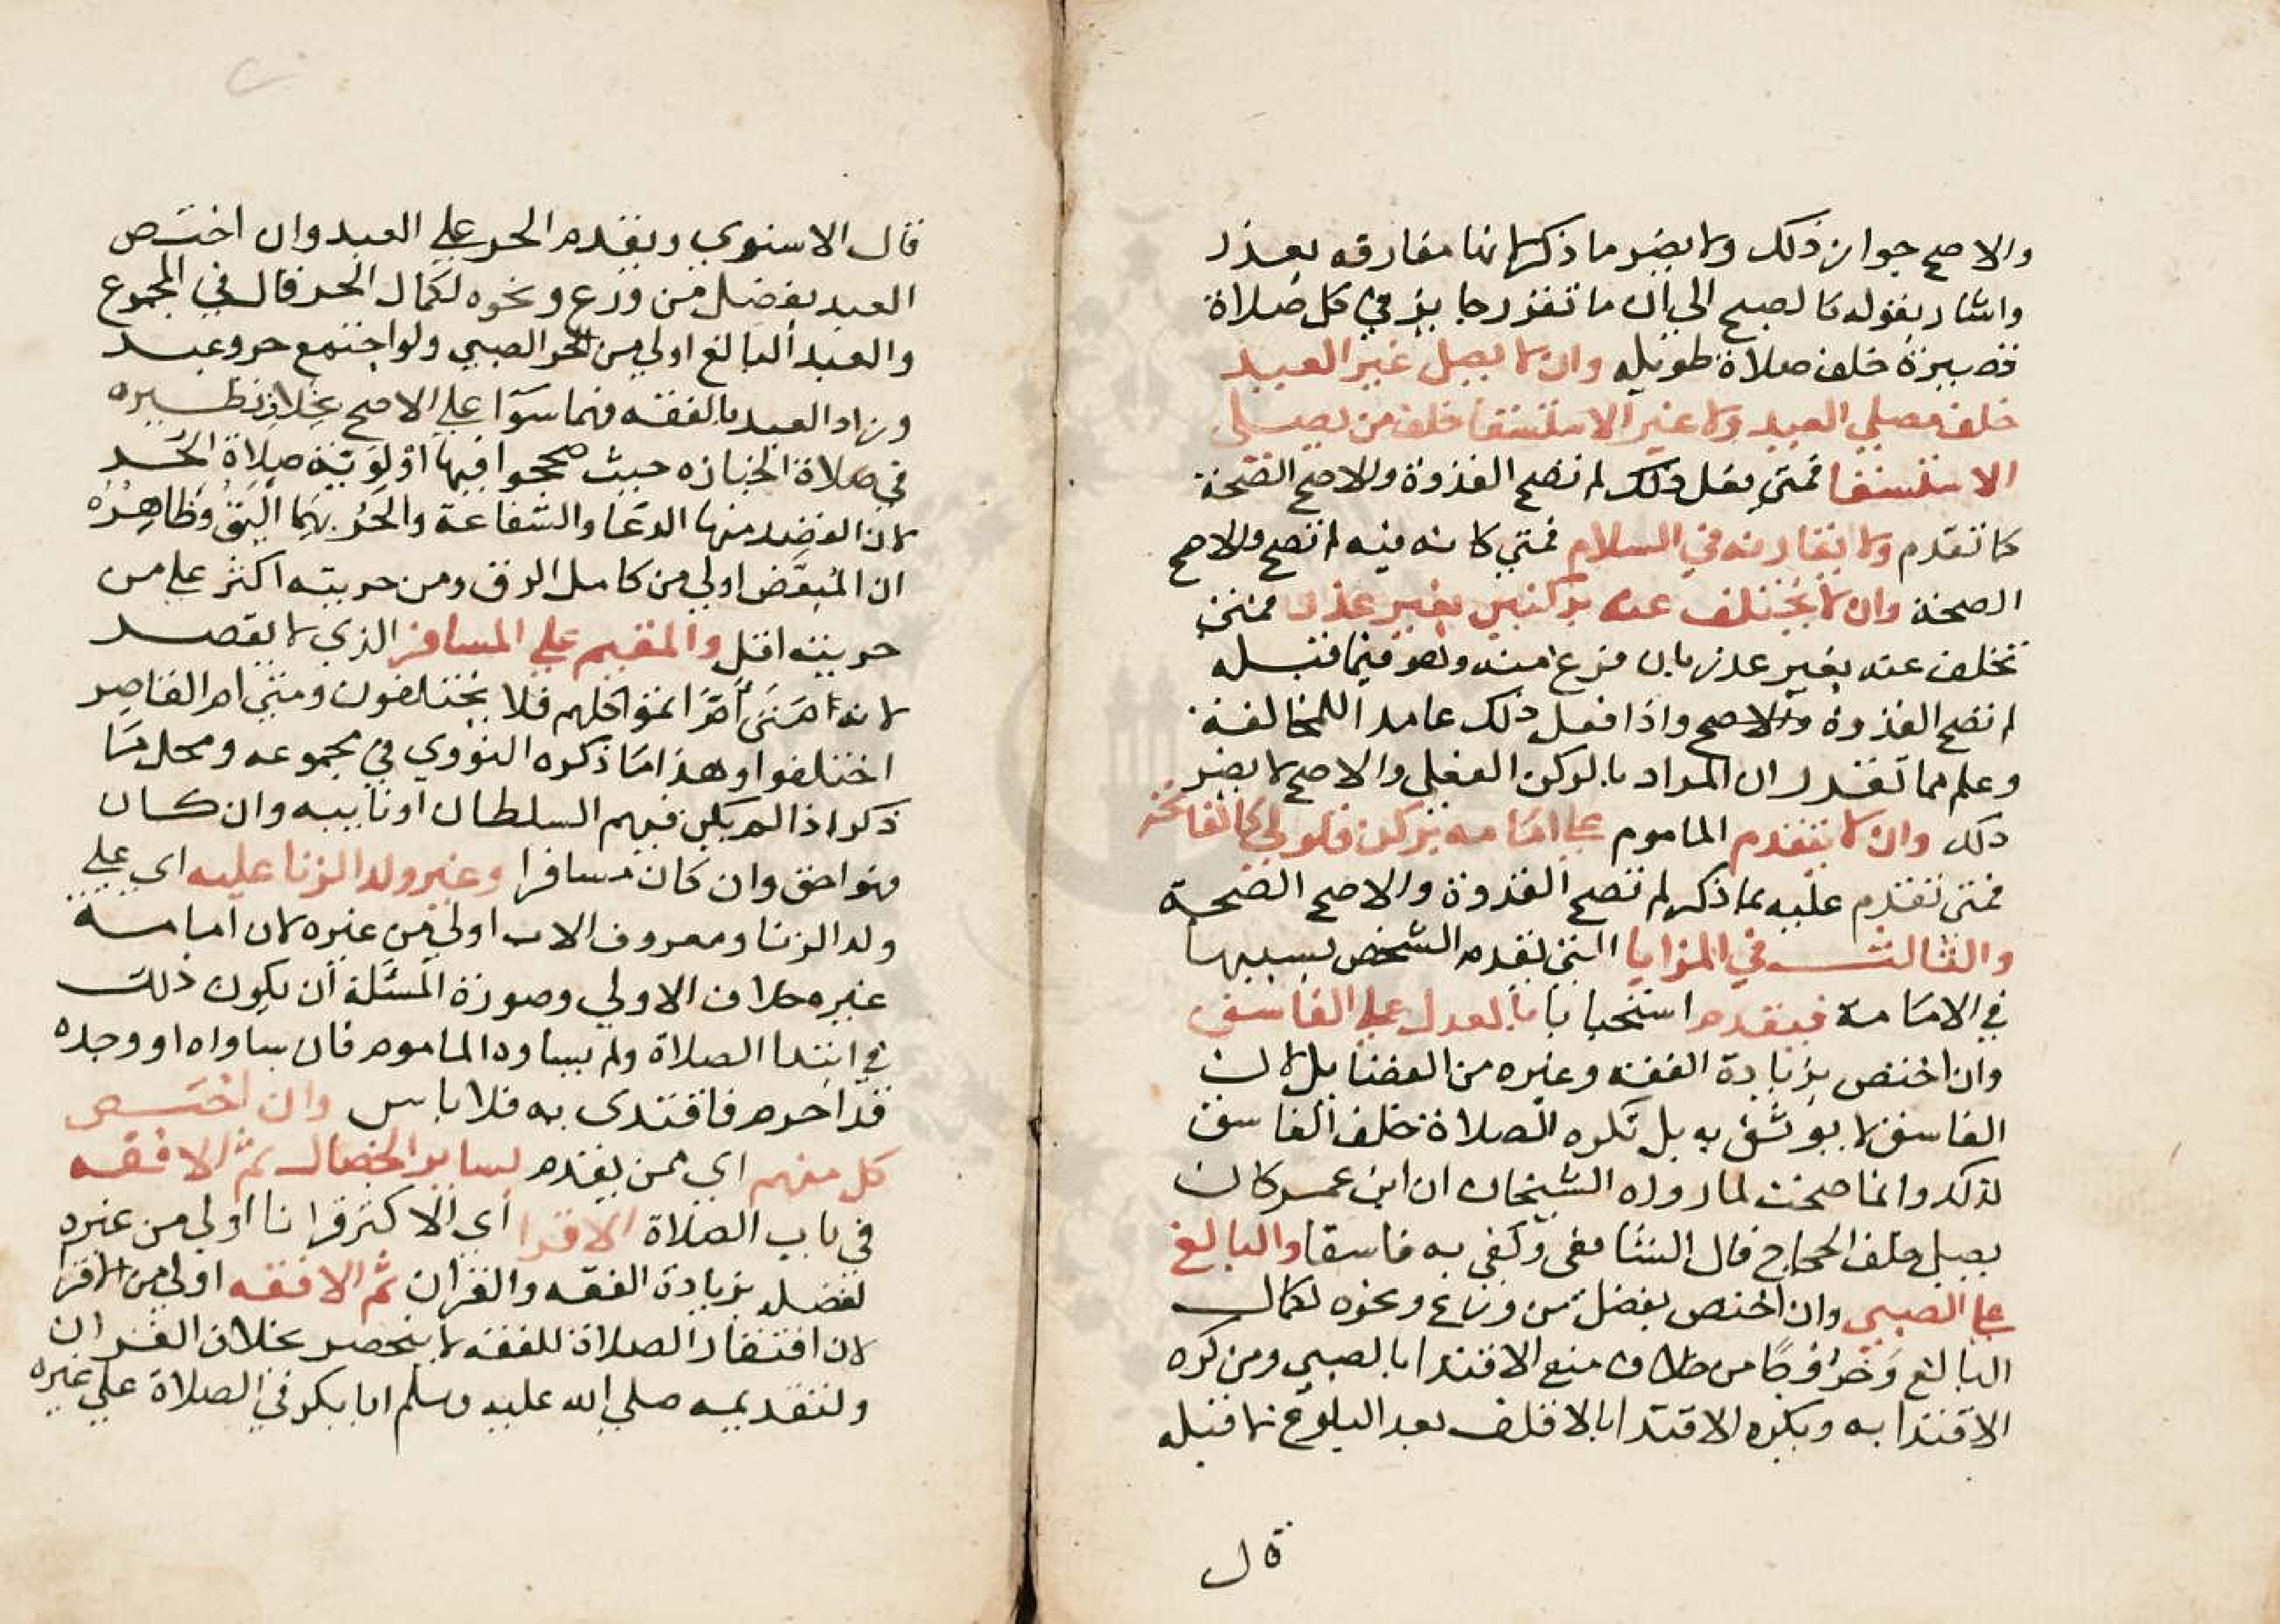 والاصح جواز ذلك ولا يضر ما ذكر لانها مفارقه بعذر
واشار بقوله كالصبح الي ان ما تقرر جا يز في كل صلاة
قصيرة خلف صلاة طويله وان لا يصلي غير العيد
خلف مصلي العيد ولا غير الاستسقا خلف من يصلي
الاستسقا فمتي فعل ذلك لم تصح القدوة والاصح الصحة
كما تقدم ولا يقارنه في السلام فمتي كا نه فيه لم تصح والاصح
الصحة وان لا يتخلف عنه بركنين بغير عذر فمتي
تخلف عنه بغير عذر بان فرغ منه وهو فيما قبله
لم تصح القدوة والاصح واذا فعل ذلك عامدا للمخالفة
وعلم مما تقرر ان المراد بالركن الفعلي والاصح لا يضر
ذلك وان لا يتقدم الماموم علي امامه بركن قولي كالفاتحة
فمتي تقدم عليه بما ذكر لم تصح القدوة والاصح الصحة
والثالث في المزايا التي يقدم الشخص بسببها
في الامامة فيقدم استحبابا بالعدل علي الفاسق
وان اختص بزيادة الفقه وغيره من الفضايل لان
الفاسق لا يوثق به بل تكره الصلاة خلف الفاسق
لذلك وانما صحت لما رواه الشيخان ان ابن عمر كان
يصلي خلف الحجاج قال الشافعي وكفي به فاسقا والبالغ
علي الصبي وان اختص بفضل من ورع ونحوه لكمال
البالغ وخروجا من خلاف منع الاقتدا بالصبي ومن كره
الاقتدا به ويكره الاقتدا بالاقلف بعد البلوغ لا قبله
قال
قال الاسنوي ويقدم الحر علي العبد وان اختص
العبد بفضل من ورع ونحوه لكمال الحر قال في المجموع
والعبد البالغ اولي من الحر الصبي ولو اجتمع حر وعبد
وزاد العبد بالفقه فهما سوا علي الاصح بخلاف نظيره
في صلاة الجنازه حيث صححوا فيها اولوية صلاة الحر
لان القصد منها الدعا والشفاعة والحر بهما اليق وظاهره
ان المبعض اولي من كامل الرق ومن حريته اكثر علي من
حريته اقل والمقيم علي المسافر الذي لا يقصد
لانه اذا اتم اتموا كلهم فلا يختلفون ومتي ام القاصر
اختلفوا وهذا ما ذكره النووي في مجموعه ومحل ما
ذكر اذا لم يكن فيهم السلطان او نايبه وان كان
فهو احق وان كان مسافرا وغير ولد الزنا عليه اي علي
ولد الزنا ومعروف الاب اولي من غيره لان امامة
غيره خلاف الاولي وصورة المسئلة ان يكون ذلك
في ابتدا الصلاة ولم يساوه الماموم فان ساواه او وجده
قد احرم فاقتدي به فلا باس وان اختص
كل منهم اي ممن يقدم بساير الخصال ثم الافقه
في باب الصلاة الاقرا اي الاكثر قرانا اولي من غيره
لفضله بزيادة الفقه والقران ثم الافقه اولي من الاقرا
لان افتقار الصلاة للفقه لا ينحصر بخلاف القران
ولتقديمه صلي الله عليه وسلم ابا بكر في الصلاة علي غيره